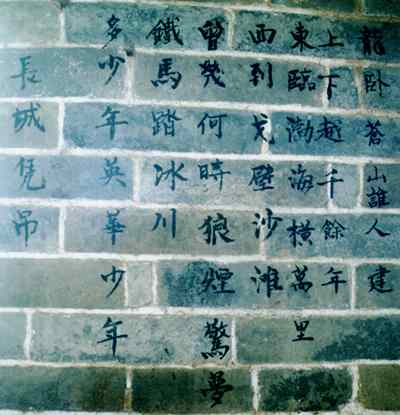 龍卧蒼山誰人建
上下越千餘年
東臨渤海橫萬里
西到戈壁沙灘
曾幾何時狼煙驚夢
鐵馬踏冰川
多少年英華少年
長城凭吊